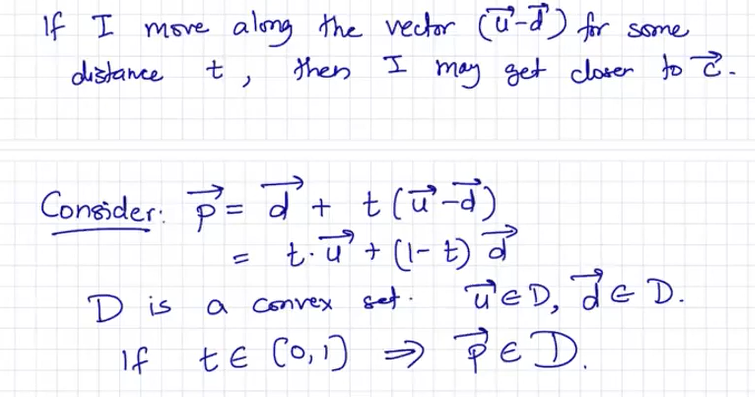 If I move along the vector (u⃗-d⃗) for some
distance t, then I may get closer to c⃗.
Consider: p⃗ = d⃗ + t(u⃗-d⃗)
= t·u⃗ + (1-t) d⃗
D is a convex set. u⃗ ∈ D, d⃗ ∈ D.
If t ∈ [0,1] ⇒ p⃗ ∈ D.